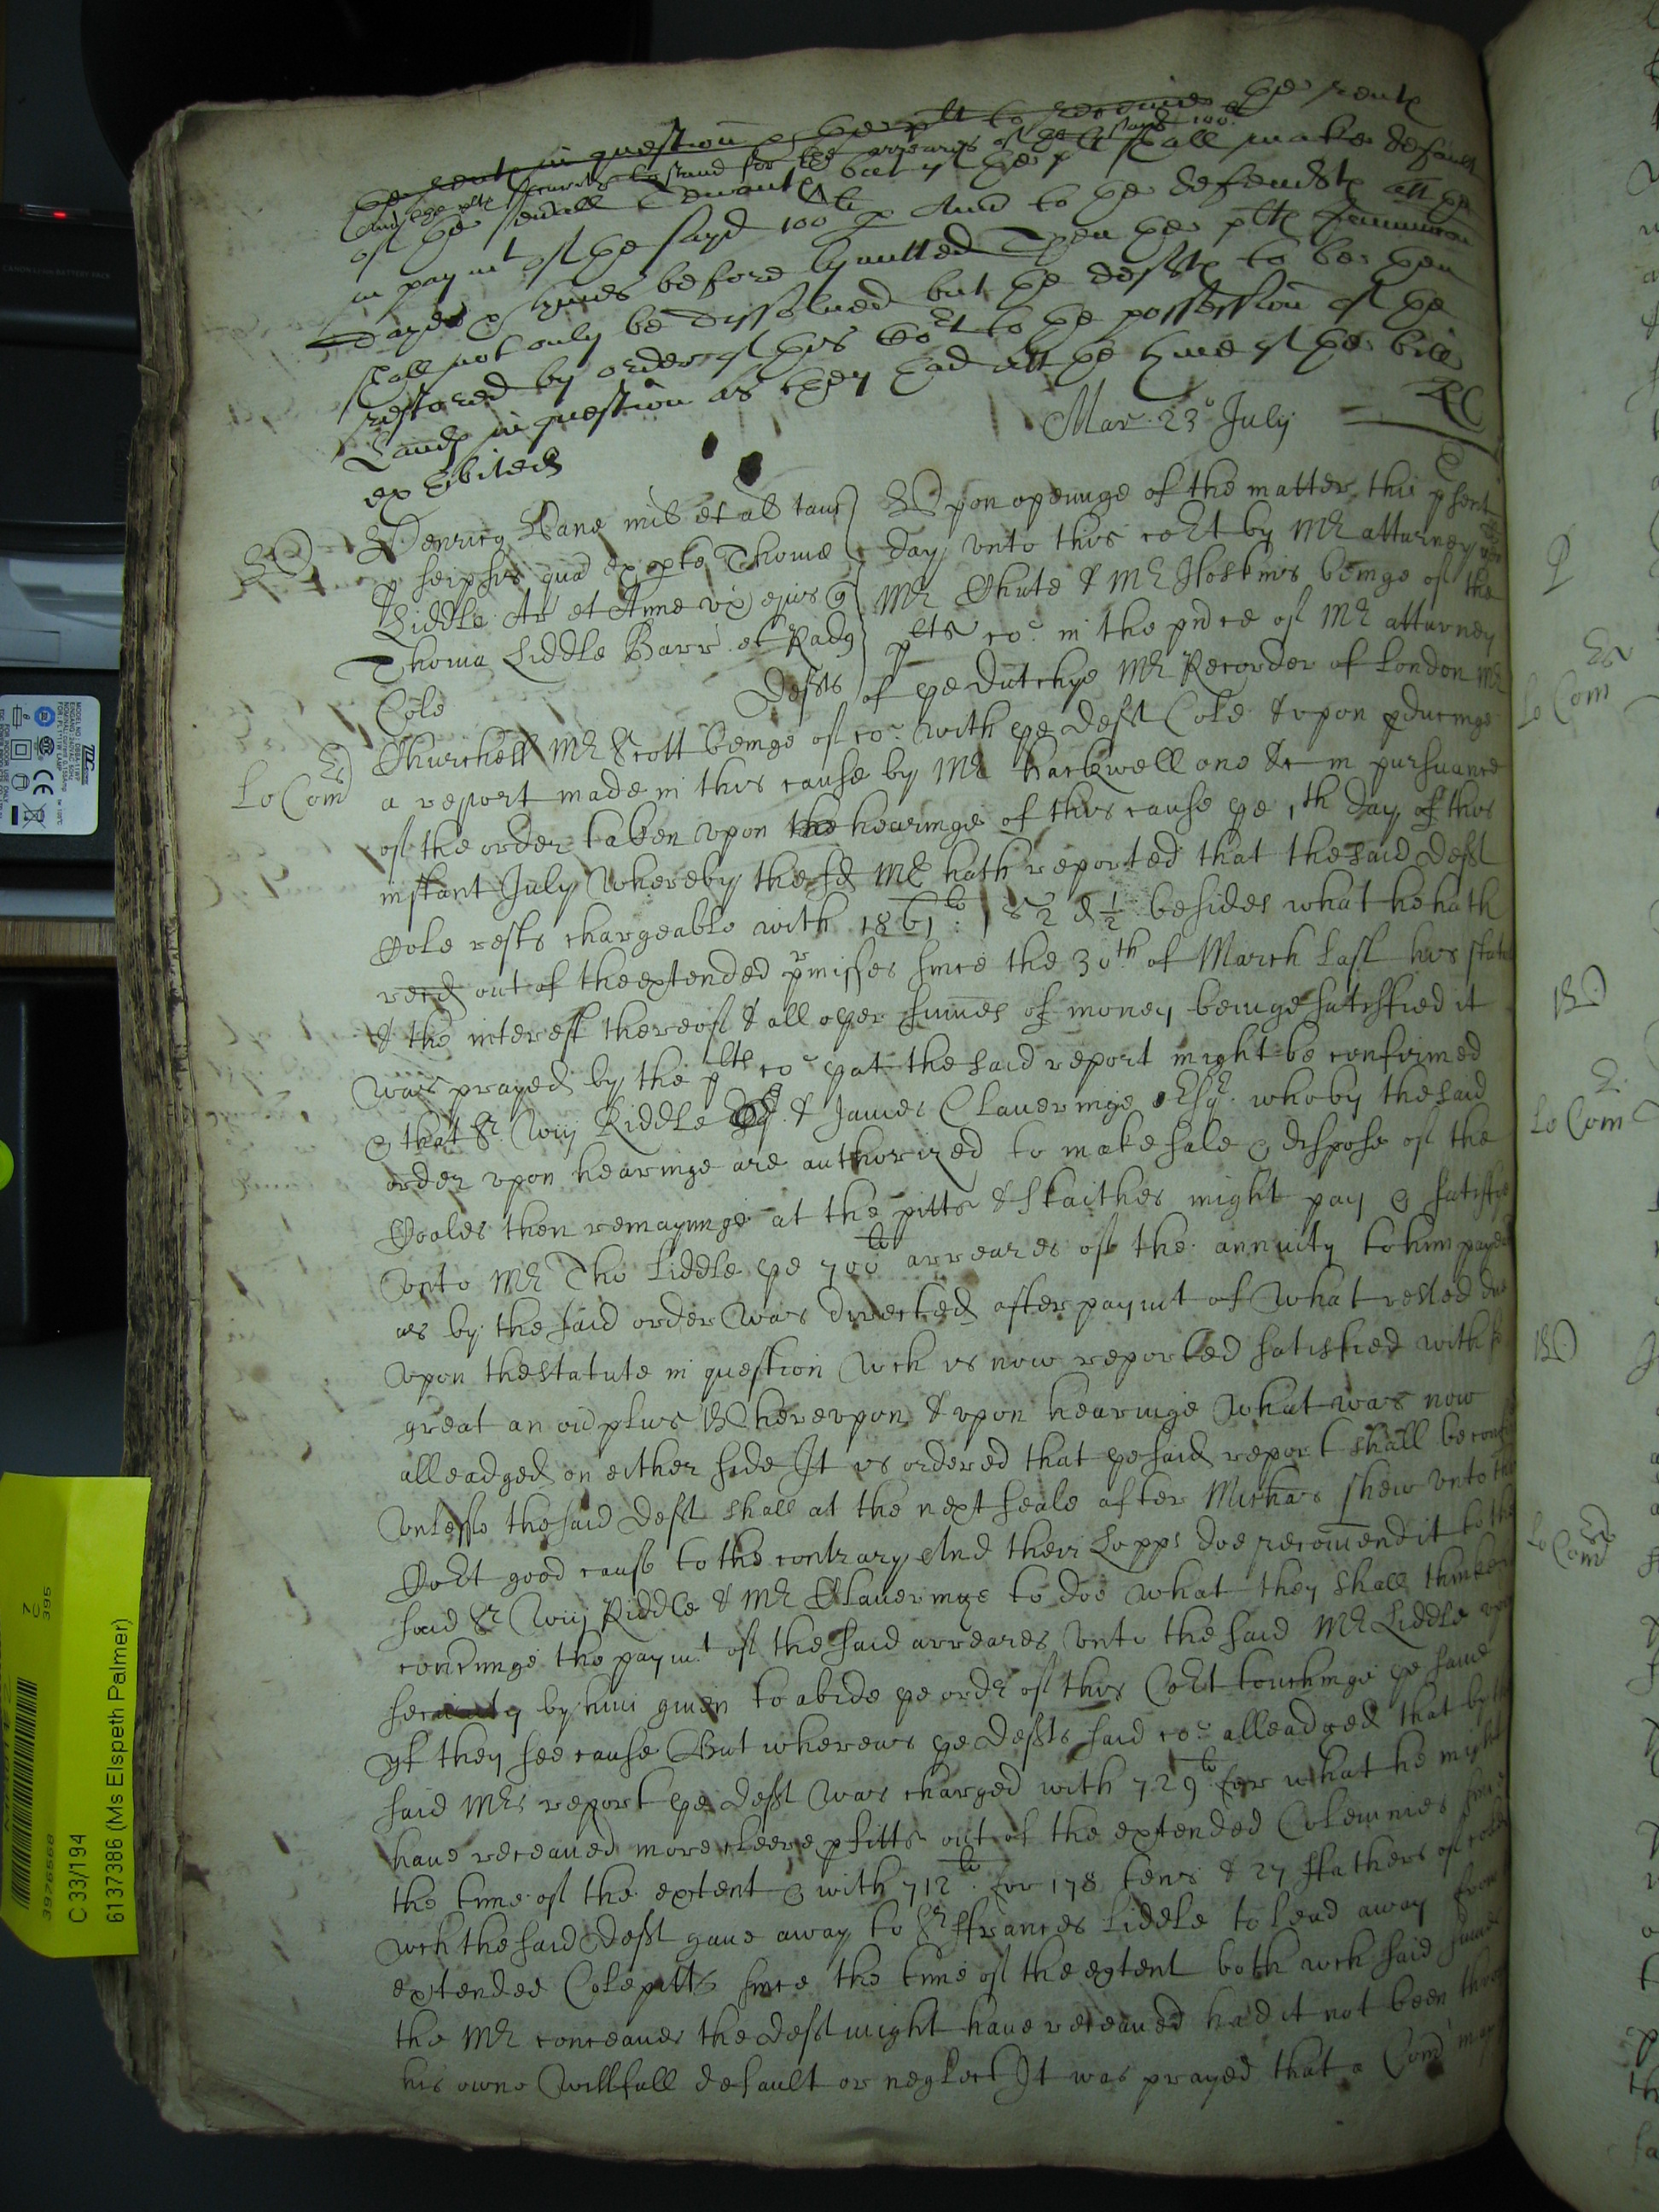 ye rents in question of ye plt to receive ye rents
and ye plts security to stand for the arreares of ye stand 100li
of ye severall Tenants but yf ye plt shall make default
in paymt of ye sayd 100li p And to ye defendts att ye
dayes & tymes before lymitted Then ye plts Iniunccon
shall not only be dissolued but ye defts to be then
restored by order of this Cort to ye possession of ye
Lands in question as they had att ye tyme of ye bill
exhibited
RC
Mar 23o July
Henric Vane mil et al tam
p seipsis qud ex pte Thome
Liddle Ar et Anne vx eius q
Thoma Liddle Barr et Rado
Cole Defts
Vpon openinge of the matter this psent
day vnto this cort by Mr atturney
Mr Chute & Mr Hoskins beinge of the
plts co: in the pnce of Mr atturney
of ye Dutchye Mr Recorder of London Mr
Lo Com
Churchell Mr Scott beinge of co: with ye deft Cole & vpon pducinge
a report made in this cause by Mr Hackwell one &c in pursuance
of the order taken vpon the hearinge of this cause ye 1th day of this
instant July whereby the sd Mr hath reported that the said deft
Cole rests chargeable with 1861li: 1s 2d ½ besides what he hath
recd out of the extended pmisses since the 30th of March last his statute
& the interest thereof & all oyer summes of money beinge satisfied it
was prayed by the plts co: yat the said report might be confirmed
& that Sr Wm Riddle & James Claveringe Esqr. who by the said
order vpon hearinge are authorized to make sale & dispose of the
Coales then remayninge at the pitts & Staithes might pay & satisfie
vnto Mr Tho Liddle ye 700li arreares of the annuity to him payed
as by the said order was directed after paymt of what rested due
vpon the statute in question wch is now reported satisfied with so
great an ouplus Wherevpon & vpon hearinge what was now
alleadged on either side It is ordered that ye said report shall be
vnlesse the said deft shall at the next seale after Michas shew vnto this
Cort good cause to the contrary And their Lopps doe recomend it to the
said Sr Wm Riddle & Mr Claveringe to doe what they shall thinke
concerninge the paymt of the said arreares vnto the said Mr Liddle vpon
security by him given to abide ye ordr of this Cort touchinge ye same
yf they see cause But whereas ye defts said co: alleadged that by the
said Mrs report ye deft was charged with 729li for what he might
have receaued more cleere pfitts out of the extended Coleminies since
the time of the extent & with 712li for 178 tens & 27 ffathers of coles
wch the said deft gaue away to Sr ffrances Liddle to lead away from
extended Colepitts since the time of the extent both wch said sumes
the Mr conceaues the deft might haue receaued had it not been through
his owne willfull default or neglect It was prayed that a Com may
Lo Com
Lo Com
Lo Com
C 33/194
6137386 (Ms Elspeth Palmer)
3976568
7
C
395
CANON LI-ION BATTERY PACK